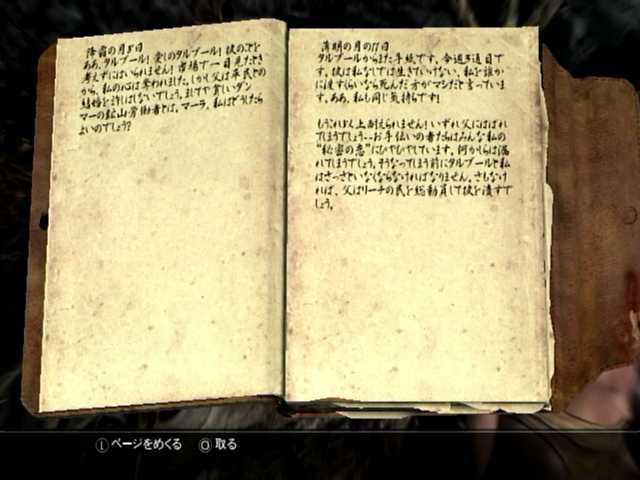 降霜の月8日
ああ、タルブール! 愛しのタルブール! 彼のことを
考えずにはいられません! 市場で一目見たとき
から、私の心は奪われました。しかし父は平民との
結婚を許しはしないでしょう。ましてや貧しいダン
マーの鉱山労働者とは。マーラ、私はどうしたら
よいのでしょう?
薄明の月の11日
タルブールからまた手紙です。今週3通目で
す。彼は私なしでは生きていけない、私を誰か
に渡すくらいなら死んだ方がマシだと言っていま
す。ああ、私も同じ気持ちです!
もうこれ以上耐えられません! いずれ父にはばれ
てしまうでしょう…お手伝いの者たちはみんな私の
"秘密の恋"にひやひやしています。何かしらは漏
れてしまうでしょう。そうなってしまう前にタルブールと私
はさっさといなくならなければなりません。さもなけ
れば、父はリーチの民を総動員して彼を潰すで
しょう。
Ⓛ ページをめくる ○ 取る